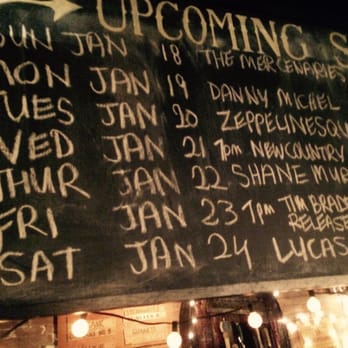 UPCOMING S
SUN JAN 18 THE MERCENARIES
MON JAN 19 DANNY MICHEL
TUES JAN 20 ZEPPELINESQU
WED JAN 21 7pm NEW COUNTRY
THUR JAN 22 SHANE MUR
FRI JAN 23 7pm TIM BRADF
RELEASE
SAT JAN 24 LUCAS